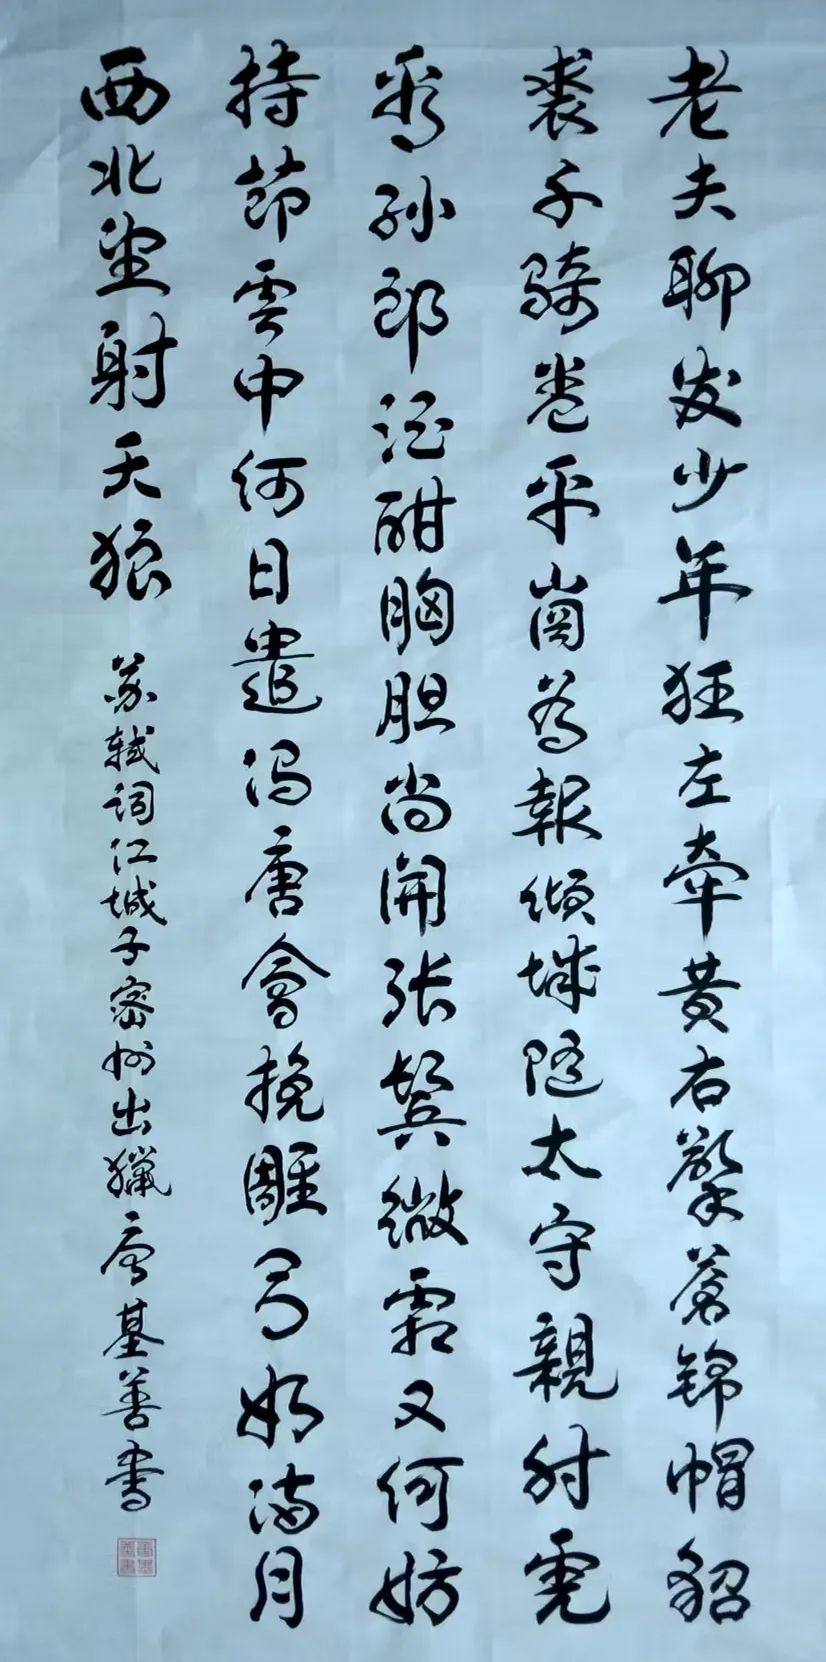 老夫聊发少年狂左牵黄右擎蒼锦帽貂
裘千骑卷平崗為報倾城随太守親射虎
看孙郎酒酣胸胆尚開张鬓微霜又何妨
持節雲中何日遣冯唐會挽雕弓如满月
西北望射天狼
苏轼词江城子密州出獵基善书